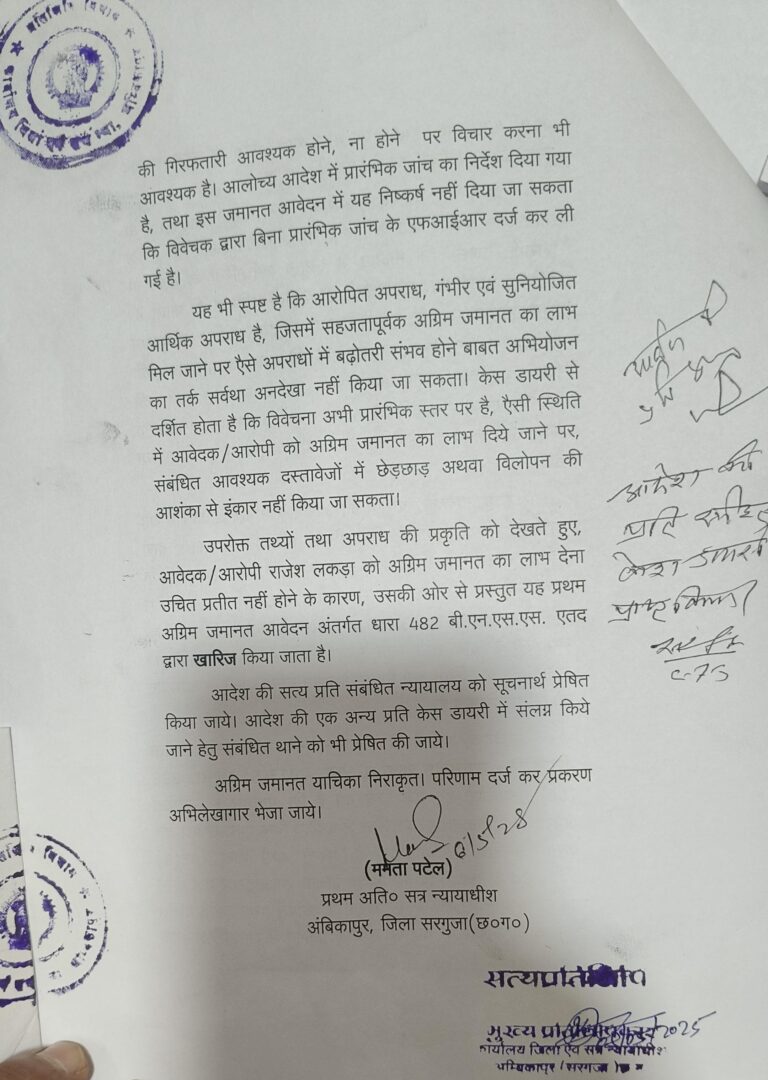 की गिरफतारी आवश्यक होने, ना होने पर विचार करना भी
आवश्यक है। आलोच्य आदेश में प्रारंभिक जांच का निर्देश दिया गया
है, तथा इस जमानत आवेदन में यह निष्कर्ष नहीं दिया जा सकता
कि विवेचक द्वारा बिना प्रारंभिक जांच के एफआईआर दर्ज कर ली
गई है।
यह भी स्पष्ट है कि आरोपित अपराध, गंभीर एवं सुनियोजित
आर्थिक अपराध है, जिसमें सहजतापूर्वक अग्रिम जमानत का लाभ
मिल जाने पर ऐसे अपराधों में बढ़ोतरी संभव होने बाबत अभियोजन
का तर्क सर्वथा अनदेखा नहीं किया जा सकता। केस डायरी से
दर्शित होता है कि विवेचना अभी प्रारंभिक स्तर पर है, ऐसी स्थिति
में आवेदक/आरोपी को अग्रिम जमानत का लाभ दिये जाने पर,
संबंधित आवश्यक दस्तावेजों में छेड़छाड़ अथवा विलोपन की
आशंका से इंकार नहीं किया जा सकता।
उपरोक्त तथ्यों तथा अपराध की प्रकृति को देखते हुए,
आवेदक/आरोपी राजेश लकड़ा को अग्रिम जमानत का लाभ देना
उचित प्रतीत नहीं होने के कारण, उसकी ओर से प्रस्तुत यह प्रथम
अग्रिम जमानत आवेदन अंतर्गत धारा 482 बी.एन.एस.एस. एतद
द्वारा खारिज किया जाता है।
आदेश की सत्य प्रति संबंधित न्यायालय को सूचनार्थ प्रेषित
किया जाये। आदेश की एक अन्य प्रति केस डायरी में संलग्न किये
जाने हेतु संबंधित थाने को भी प्रेषित की जाये।
अग्रिम जमानत याचिका निराकृत। परिणाम दर्ज कर प्रकरण
अभिलेखागार भेजा जाये।
(ममता पटेल)
प्रथम अति० सत्र न्यायाधीश
अंबिकापुर, जिला सरगुजा(छ०ग०)
आदेश की
प्रति
केश डायरी
प्राप्त किया
सत्यप्रतिलिपि
2025
कार्यालय जिला एवं सत्र न्यायाधीश